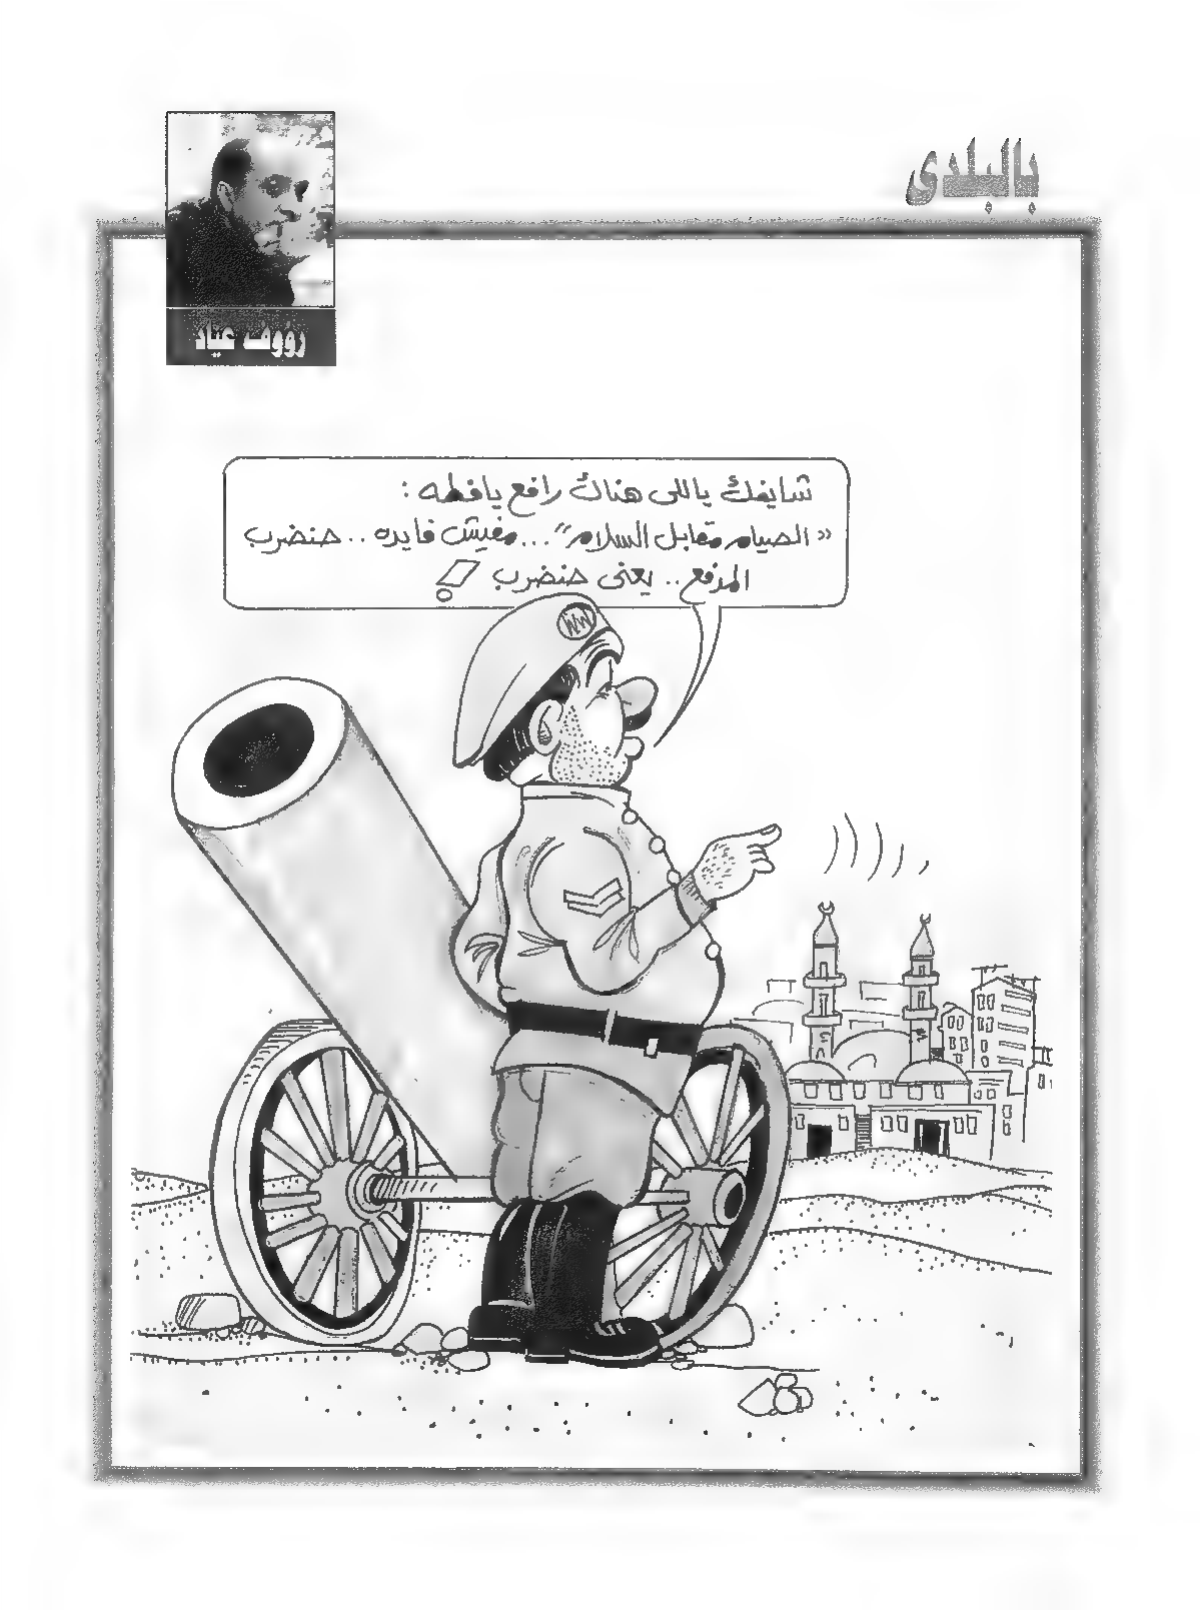 بالبلدى
رؤوف عياد
شايفك ياللى هناك رافع يافطه :
«الصيام مقابل السلام"... مفيش فايده .. حنضرب
المدفع .. يعنى حنضرب !